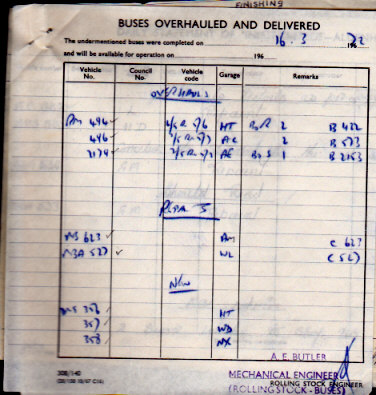 FINISHING
BUSES OVERHAULED AND DELIVERED
The undermentioned buses were completed on 16. 3 1972
and will be available for operation on 196
Vehicle No. Council No. Vehicle code Garage Remarks
OVERHAULS
RM 494 ✓ HT B.R 2 B 422
446 ✓ AC 2 B 573
2174 ✓ AE B.S 1 B 2153
NS 623 ✓ AM C 627
NBA 527 ✓ WL C 527
NEW
MS 356 HT
357 WD
358 NX
A. E. BUTLER
MECHANICAL ENGINEER
ROLLING STOCK ENGINEER
(ROLLING STOCK - BUSES)